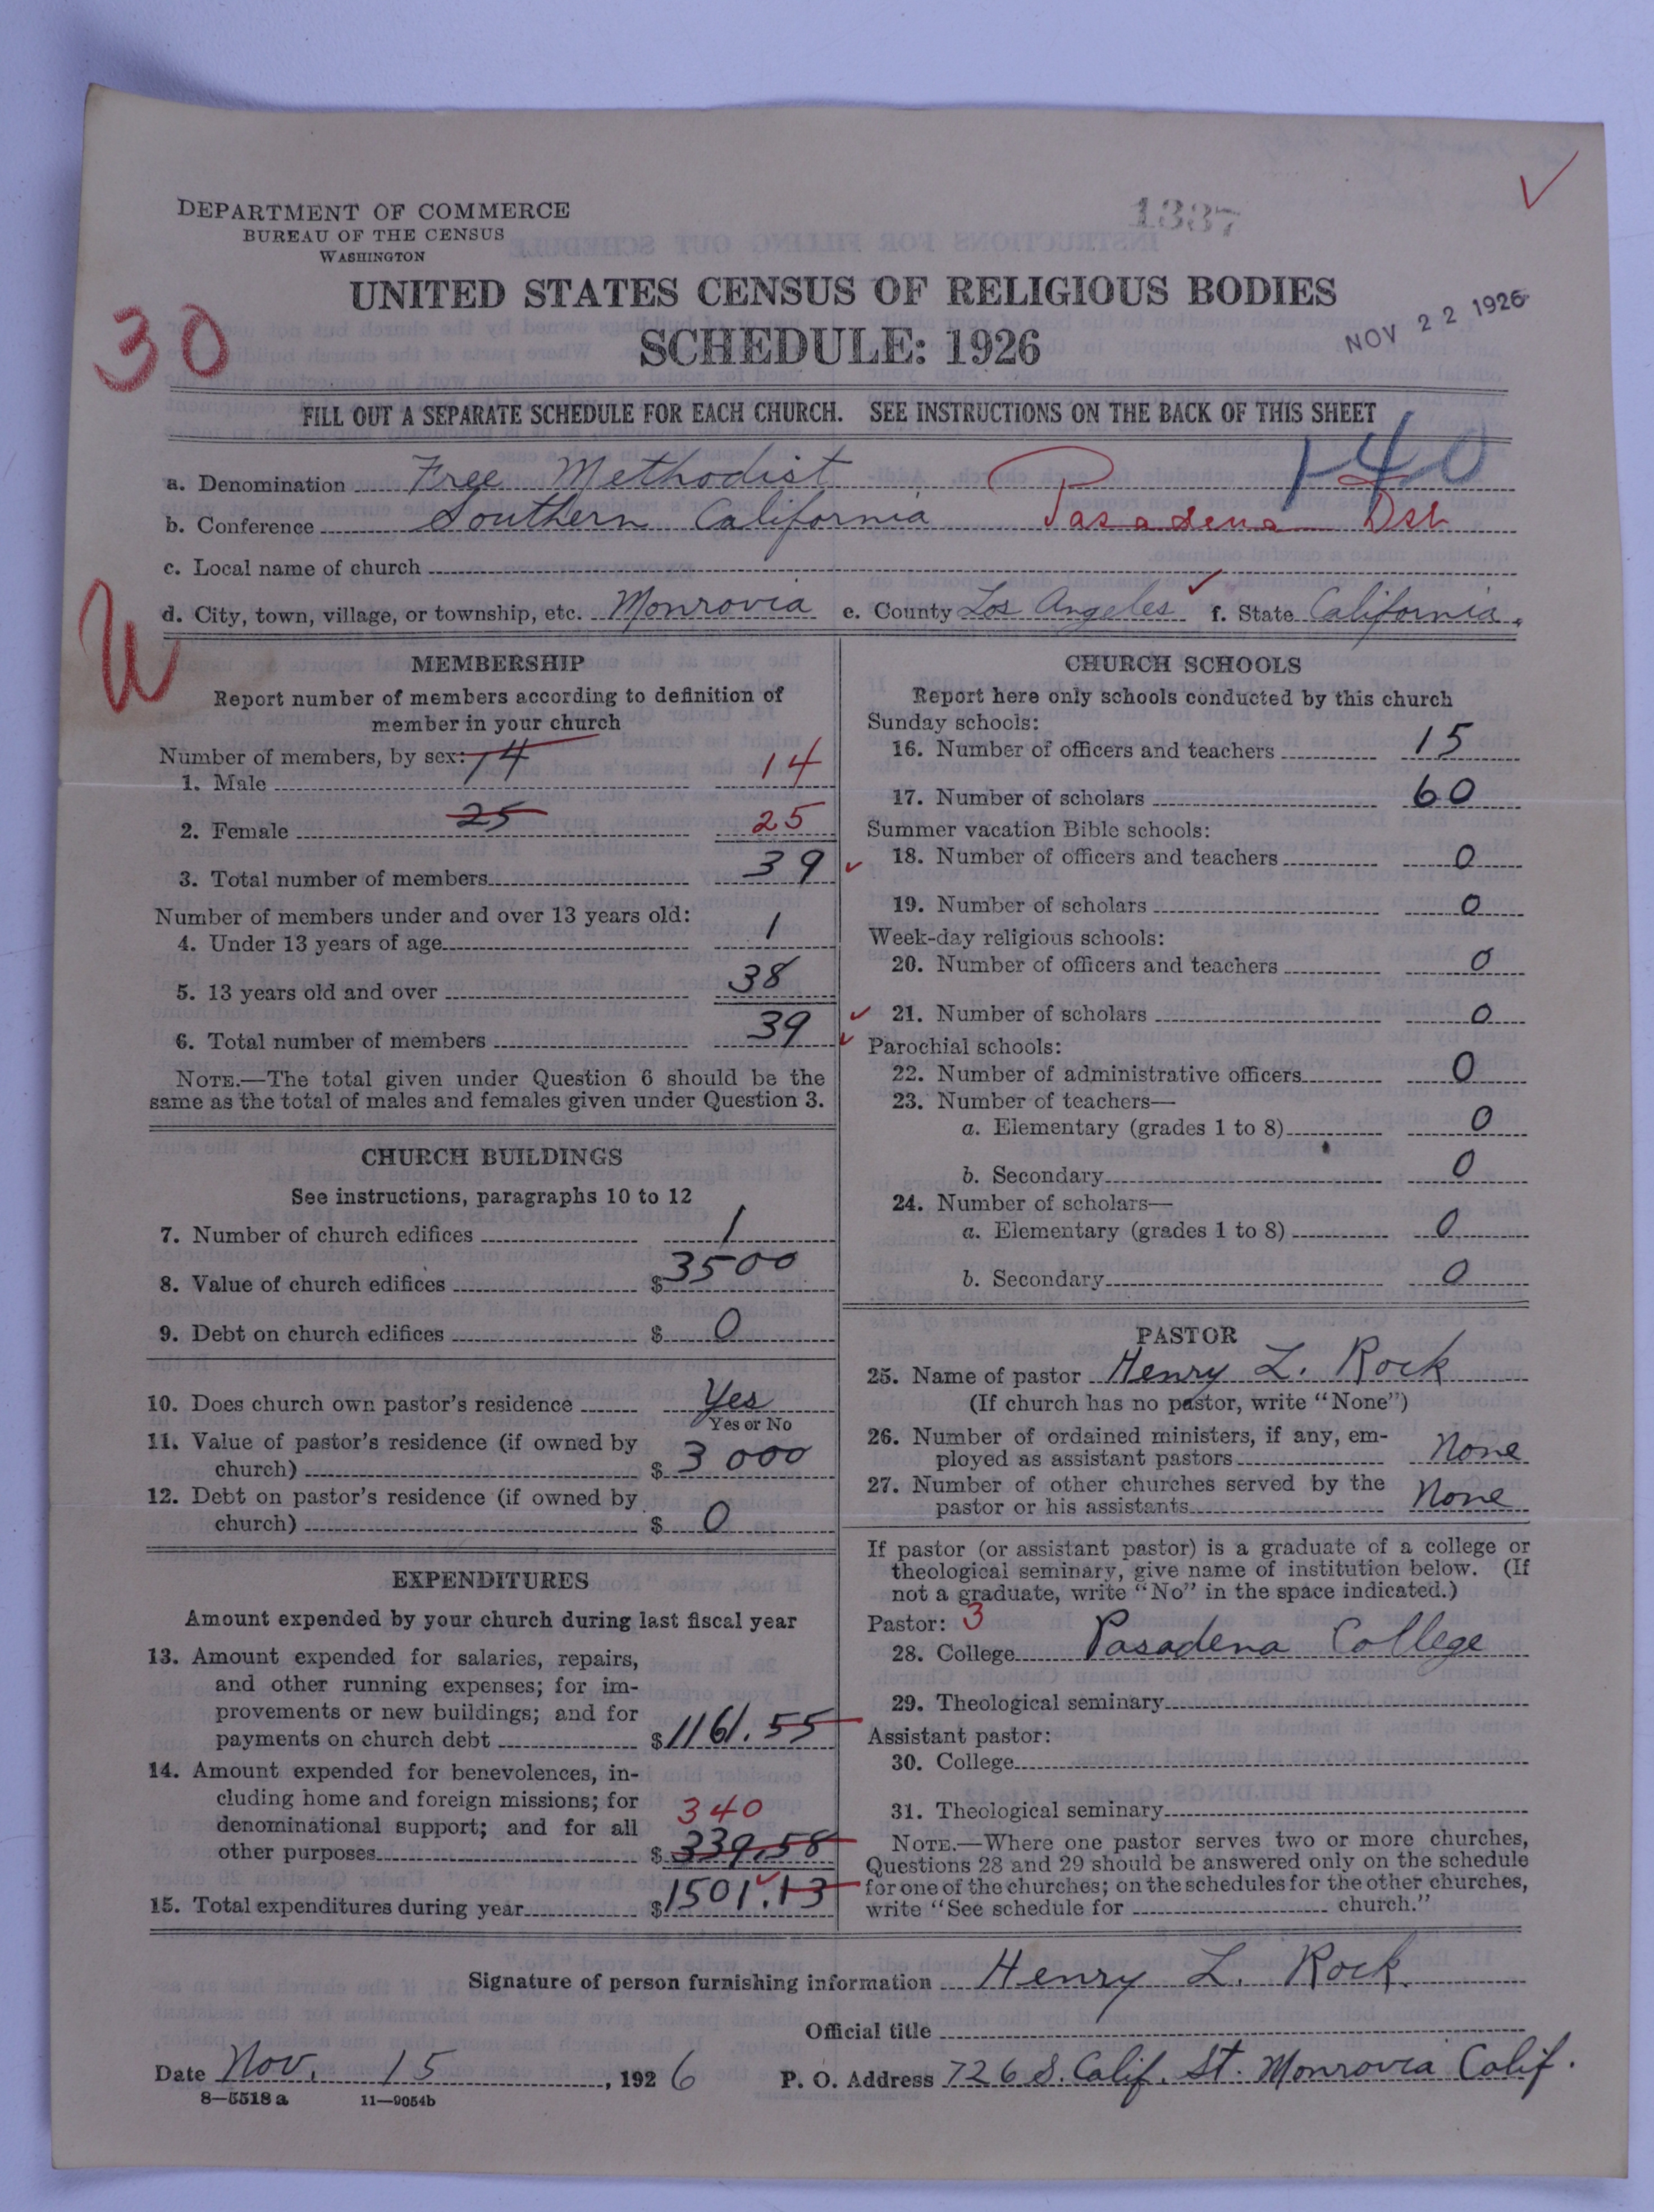 DEPARTMENT OF COMMERCE
BUREAU OF THE CENSUS
WASHINGTON
1337
UNITED STATES CENSUS OF RELIGIOUS BODIES
SCHEDULE: 1926
NOV 22 1926
30
FILL OUT A SEPARATE SCHEDULE FOR EACH CHURCH. SEE INSTRUCTIONS ON THE BACK OF THIS SHEET
140
a. Denomination Free Methodist
b. Conference Southern California Pasadena Dst
c. Local name of church
d. City, town, village, or township, etc. Monrovia e. County Los Angeles f. State California.
W
MEMBERSHIP
Report number of members according to definition of
member in your church
Number of members, by sex: 14
1. Male 14
2. Female 25 25
3. Total number of members 39
Number of members under and over 13 years old:
4. Under 13 years of age 1
5. 13 years old and over 38
6. Total number of members 39
NOTE.—The total given under Question 6 should be the
same as the total of males and females given under Question 3.
CHURCH BUILDINGS
See instructions, paragraphs 10 to 12
7. Number of church edifices 1
8. Value of church edifices $3500
9. Debt on church edifices $ 0
10. Does church own pastor's residence Yes
Yes or No
11. Value of pastor's residence (if owned by
church) $ 3000
12. Debt on pastor's residence (if owned by
church) $ 0
EXPENDITURES
Amount expended by your church during last fiscal year
13. Amount expended for salaries, repairs,
and other running expenses; for im-
provements or new buildings; and for
payments on church debt $1161.55
14. Amount expended for benevolences, in-
cluding home and foreign missions; for
denominational support; and for all 340
other purposes $ 339.58
15. Total expenditures during year $1501.13
CHURCH SCHOOLS
Report here only schools conducted by this church
Sunday schools:
16. Number of officers and teachers 15
17. Number of scholars 60
Summer vacation Bible schools:
18. Number of officers and teachers 0
19. Number of scholars 0
Week-day religious schools:
20. Number of officers and teachers 0
21. Number of scholars 0
Parochial schools:
22. Number of administrative officers 0
23. Number of teachers—
a. Elementary (grades 1 to 8) 0
b. Secondary 0
24. Number of scholars—
a. Elementary (grades 1 to 8) 0
b. Secondary 0
PASTOR
25. Name of pastor Henry L. Rock
(If church has no pastor, write "None")
26. Number of ordained ministers, if any, em-
ployed as assistant pastors None
27. Number of other churches served by the
pastor or his assistants None
If pastor (or assistant pastor) is a graduate of a college or
theological seminary, give name of institution below. (If
not a graduate, write "No" in the space indicated.)
Pastor: 3
28. College Pasadena College
29. Theological seminary
Assistant pastor:
30. College
31. Theological seminary
NOTE.—Where one pastor serves two or more churches,
Questions 28 and 29 should be answered only on the schedule
for one of the churches; on the schedules for the other churches,
write "See schedule for church."
Signature of person furnishing information Henry L. Rock.
Official title
Date Nov. 15, 1926 P. O. Address 726 S. Calif. St. Monrovia Calif.
8—5518 a 11—9054b